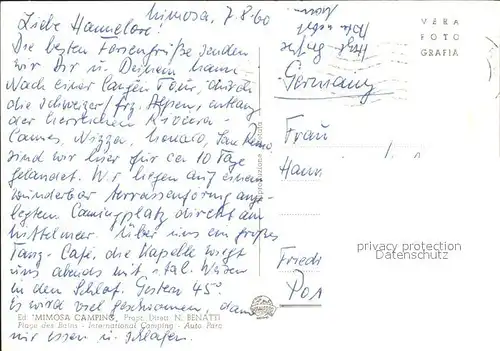 Mimosa, 7.8.60
Liebe Hannelore!
Die besten Feriengrüße senden
wir Dir u. Deinem Mann.
Nach einer langen Tour, durch
die Schweizer/frz. Alpen, entlang
der herrlichen Riviera -
Cannes, Nizza, Monaco, San Remo
sind wir hier für ca 10 Tage
gelandet. Wir liegen auf einem
wunderbar terrassenförmig ange-
legten Campingplatz direkt am
Mittelmeer. Über uns ein großes
Tanz-Café, die Kapelle wiegt
uns abends mit ital. Weisen
in den Schlaf. Gestern 45°.
Es wird viel geschwommen, dann
nur essen u. schlafen.
Ed. "MIMOSA CAMPING, Propr. Direa N. BENATTI
Plage des Bains - International Camping - Auto Parc
VERA
FOTO
GRAFIA
Germany
Frau
Hann
Friedr
Pos
privacy protection
Datenschutz